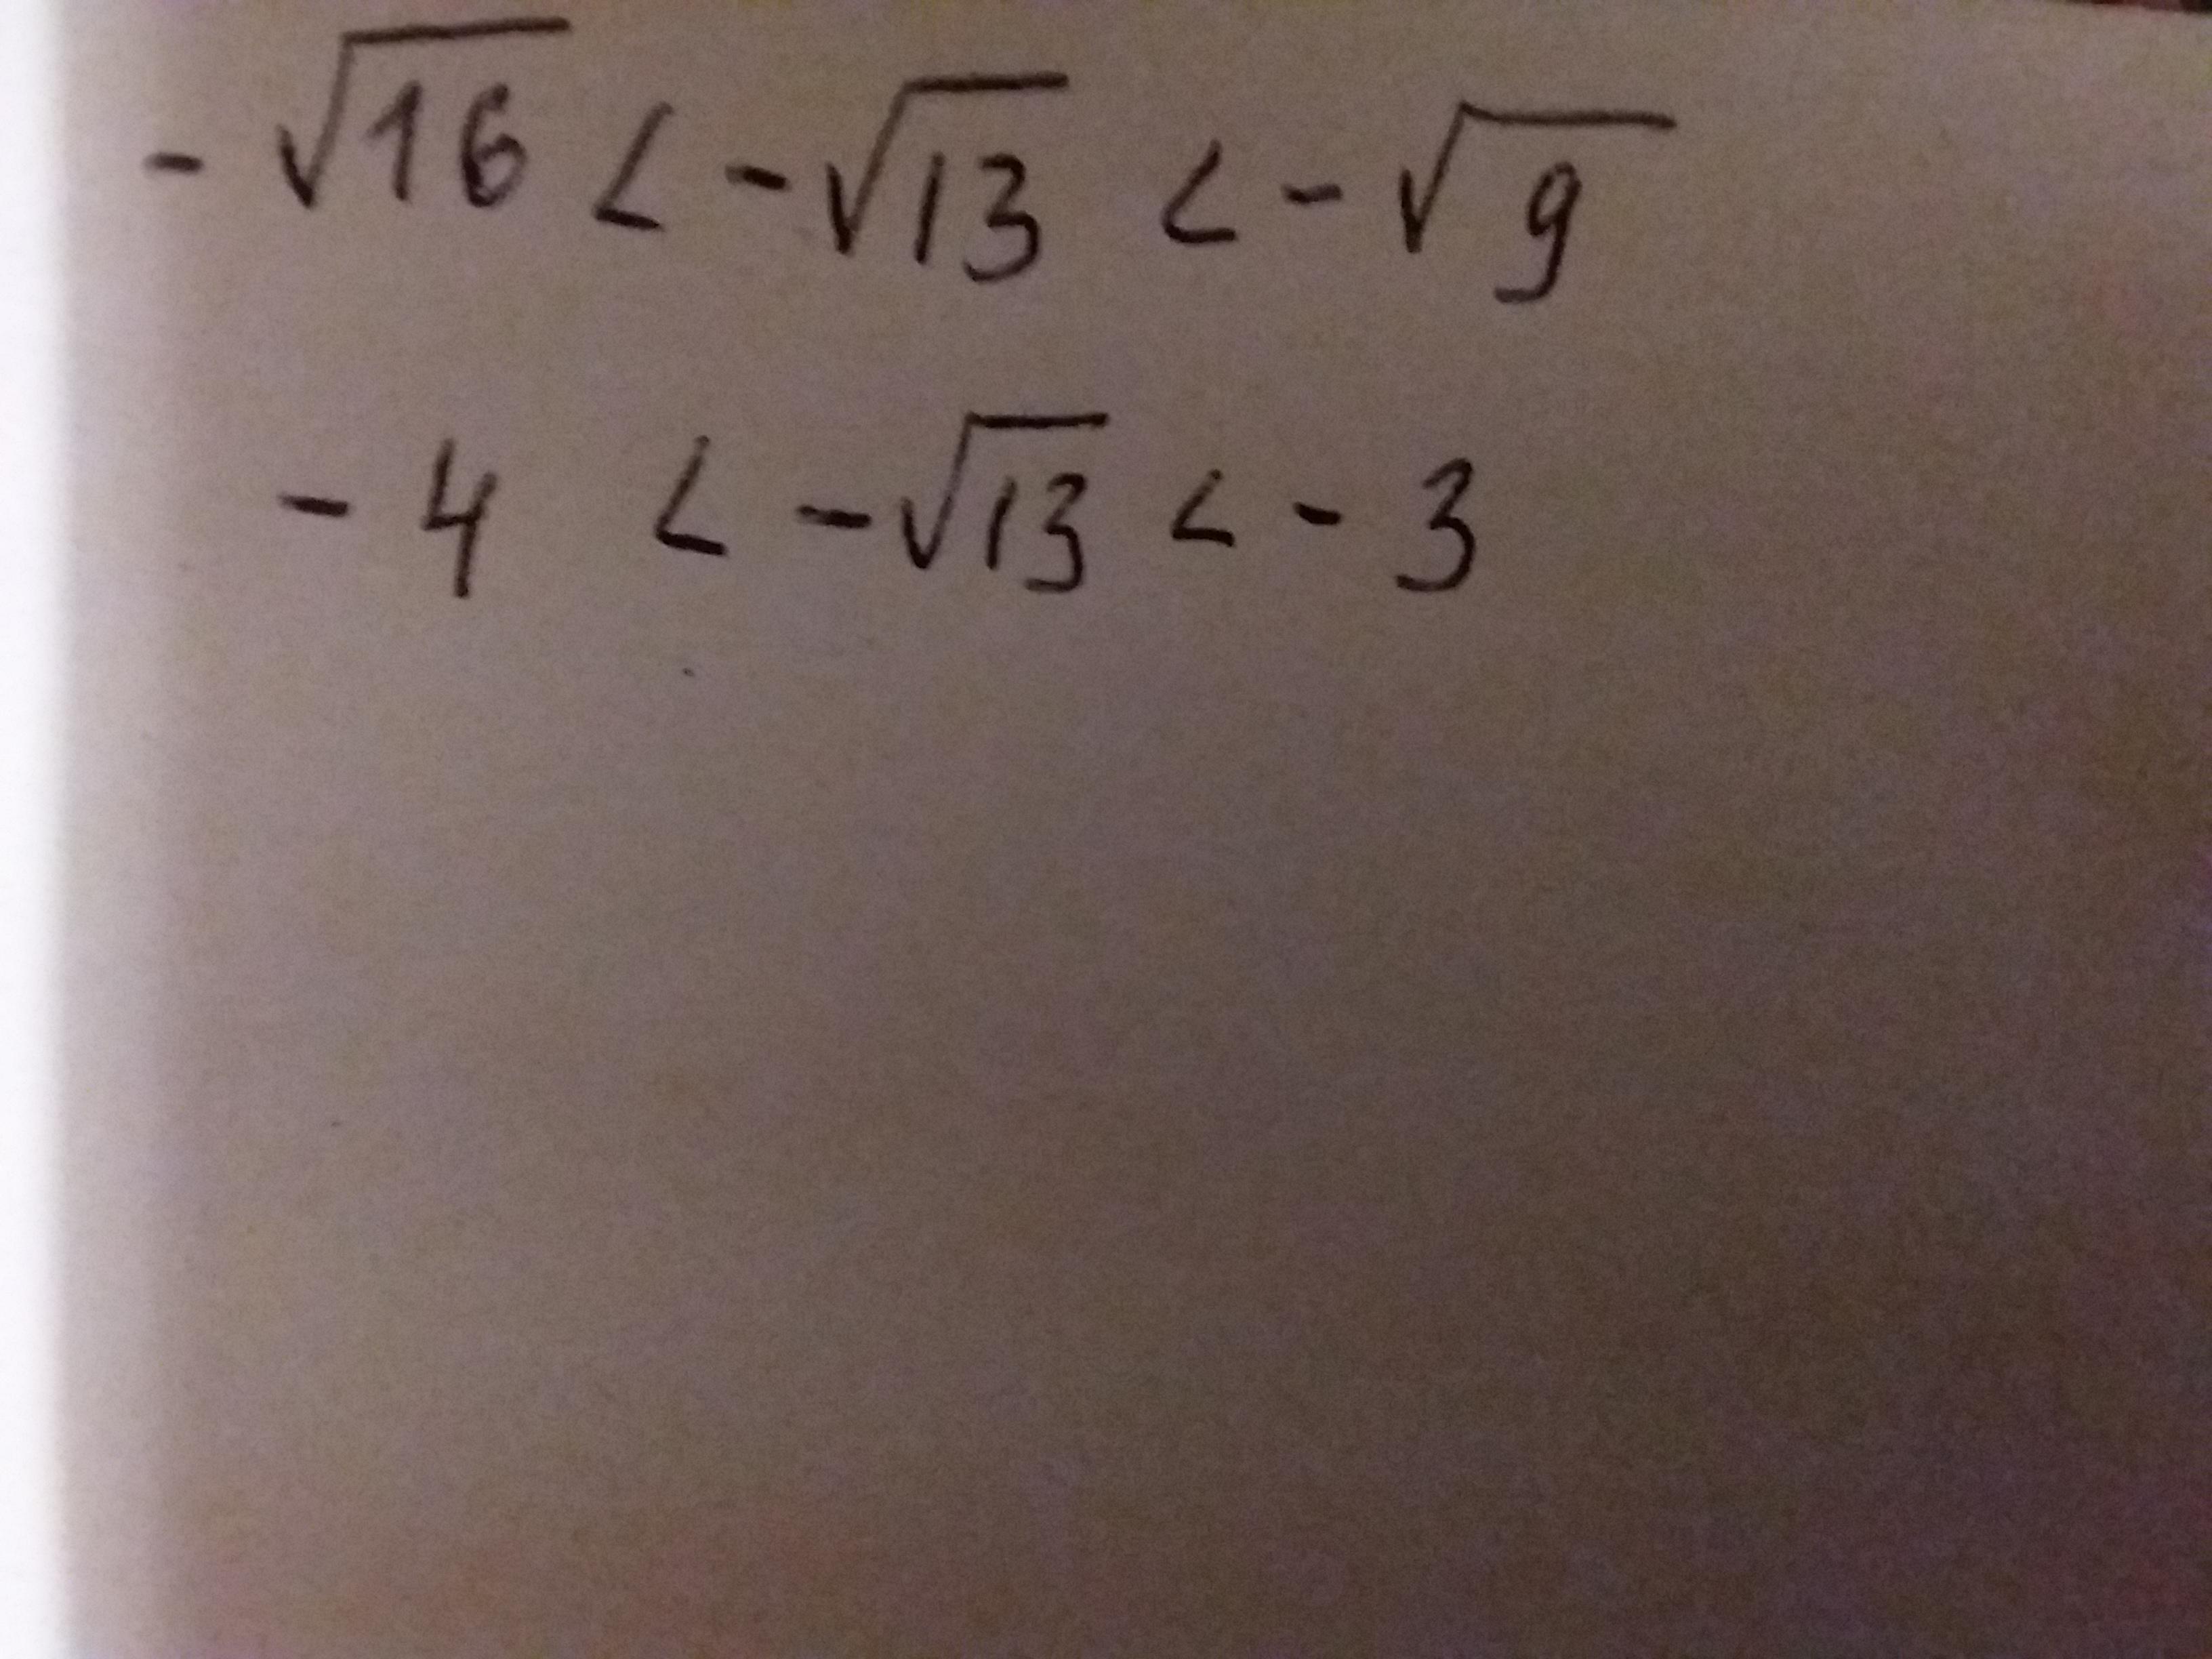 - √16 < -√13 < -√9
- 4 < -√13 < - 3